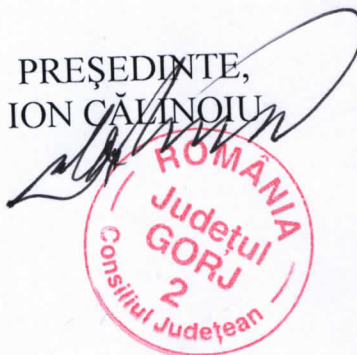 PREŞEDINTE,
ION CĂLINOIU
ROMÂNIA
Județul
GORJ
2
Consiliul Județean